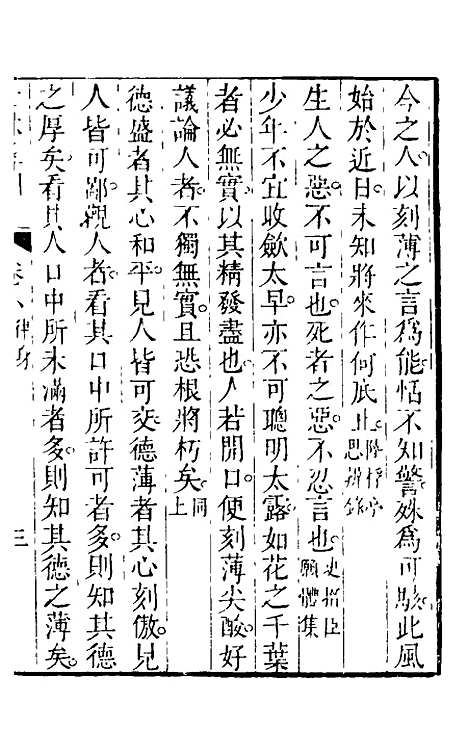 今之人以刻薄之言爲能恬不知警殊爲可駭此風
始於近日未知將來作何底止陸桴亭思辨錄
生人之惡不可言也死者之惡不忍言也史搢臣願體集
少年不宜收斂太早亦不可聰明太露如花之千葉
者必無實以其精發盡也人若開口便刻薄尖酸好
議論人者不獨無實且恐根將朽矣同上
德盛者其心和平見人皆可交德薄者其心刻傲見
人皆可鄙觀人者看其口中所許可者多則知其德
之厚矣看其人口中所未滿者多則知其德之薄矣
卷八律身
三